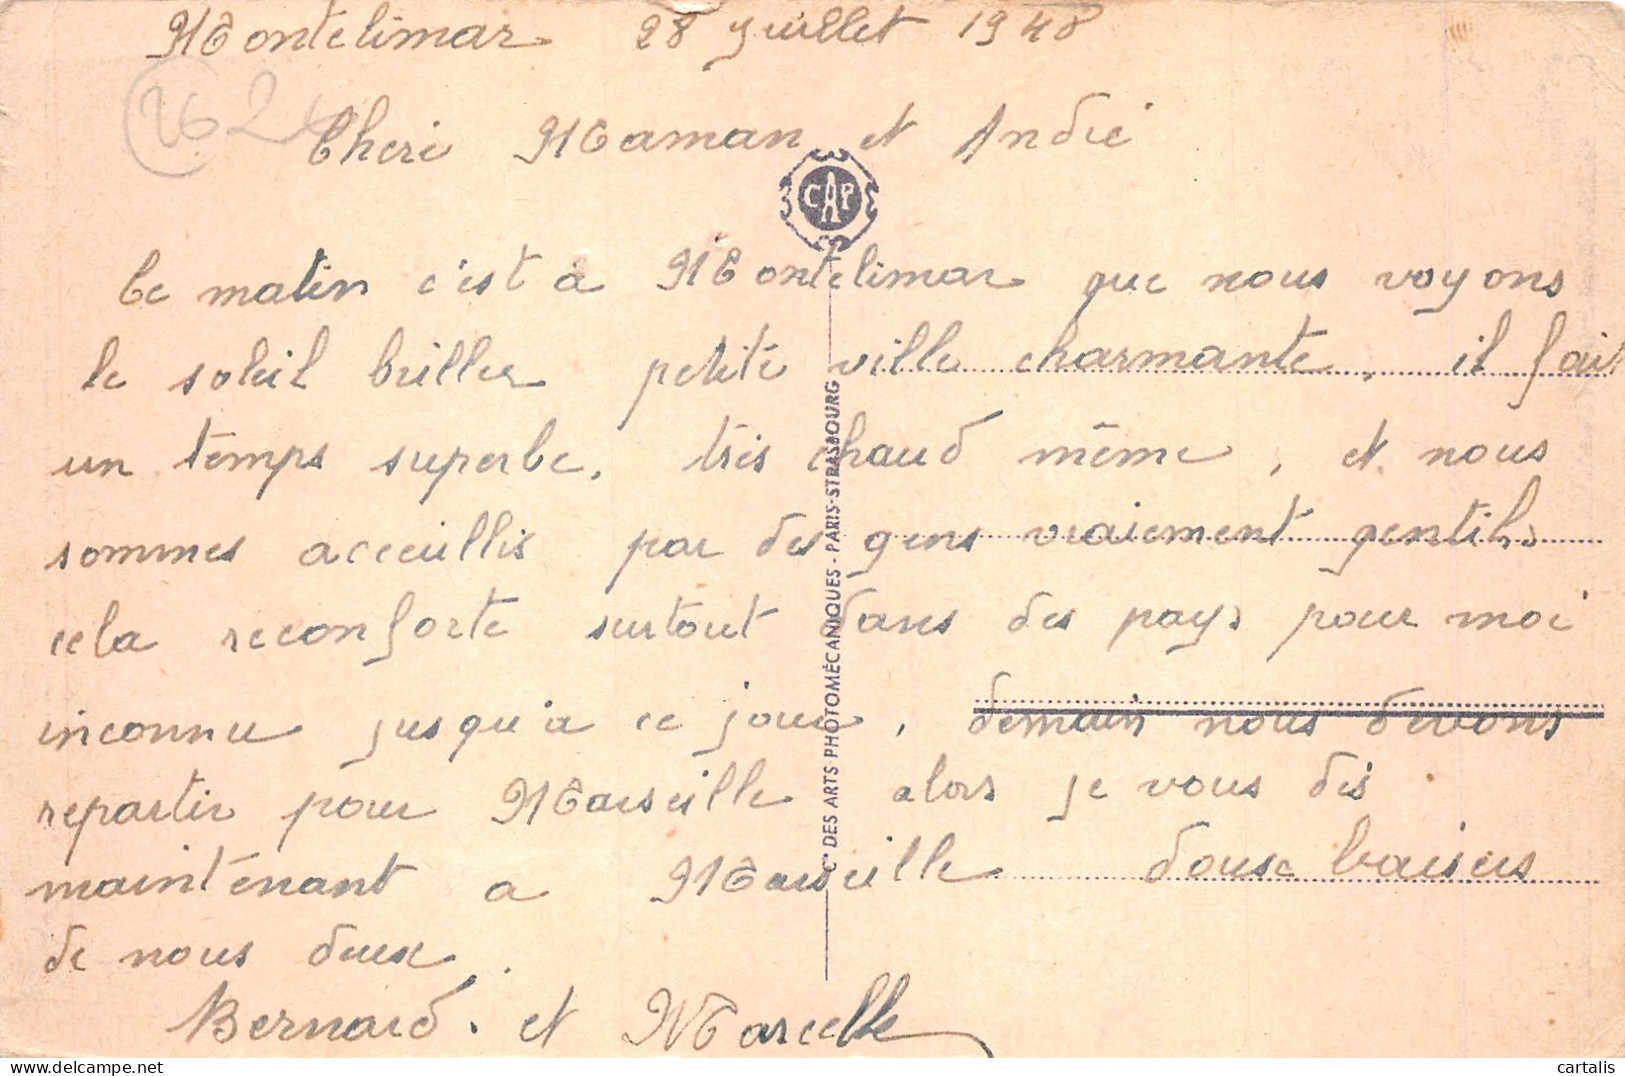 Montelimar 28 Juillet 1948
26
Cheri Maman et André
CAP
Ce matin c'est à Montelimar que nous voyons
le soleil briller petite ville charmante, il fait
un temps superbe, très chaud même, et nous
sommes acceuillis par des gens vraiement gentils
cela reconforte surtout dans des pays pour moi
inconnu jusqu'a ce jour, demain nous devons
repartir pour Marseille alors je vous dis
maintenant a Marseille douse baisers
de nous deux.
Bernard. et Marcelle
Cie DES ARTS PHOTOMÉCANIQUES - PARIS-STRASBOURG
cartalis